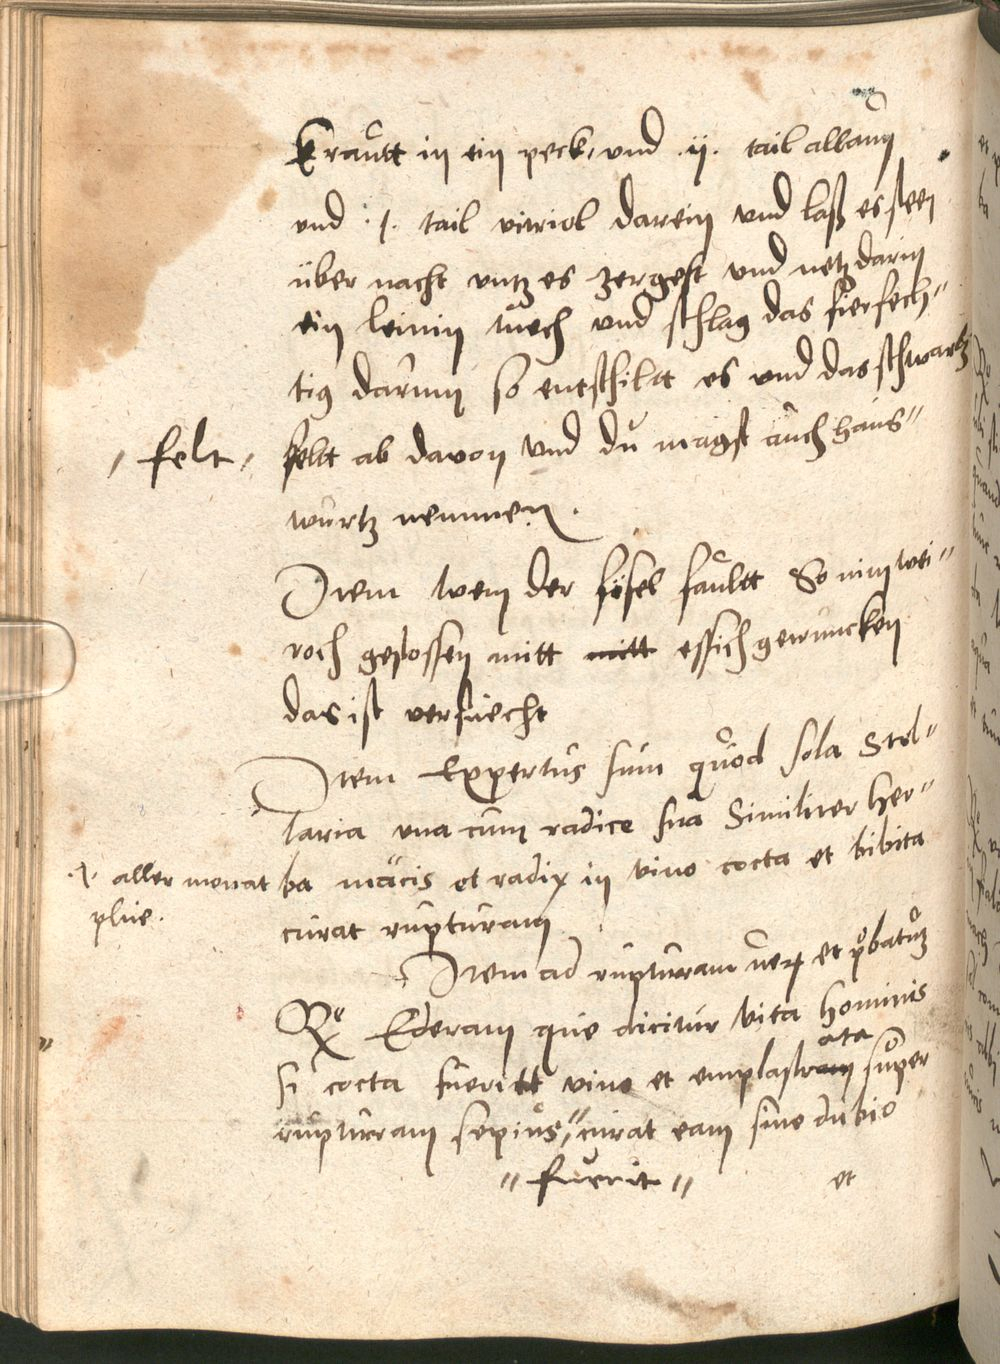 Krautt in ein peck, vnd .ij. tail allaun
vnd .j. tail vitriol darein vnd laß es steen
über nacht vntz es zergest vnd netz darin
ein leinin tuech vnd schlag das fierfech„
tig darum so entschilt es vnd das schwartz
„ felt „
felt ab davon vnd du magst auch haus„
wurtz nemmen.
Item wen der fisel faultt So nim wei„
roch gestossen mitt mitt essich gewuncken
das ist versuecht
Item Expertus sum quod sola Stel„
laria vna cum radice sua Similiter her„
.i. aller monat
plüe.
ba macis et radix in vino cocta et bibita
curat rupturam
Item ad rupturam et probatum
Rx Ederam que dicitur vita hominis
si cocta fueritt vino et emplastrata super
rupturam sepius „ curat eam sine dubio
„ fuerit „
et